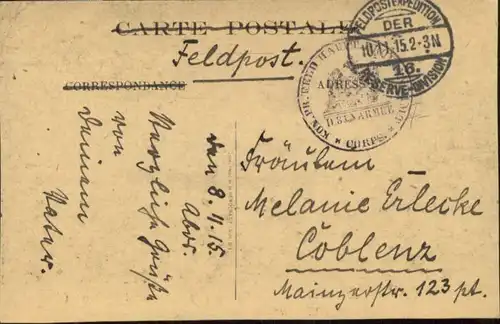 CARTE POSTALE
Feldpost.
CORRESPONDANCE
ADRESSE
FELDPOSTEXPEDITION
DER
10.11.15.2-3N
16.
RESERVE-DIVISION
KÖN. PR. FELD
D. 3TEN ARMEE
CORPS.
den 8.11.15.
Abds.
Herzliche Grüße
von
Deinem
Vater.
Fräulein
Melanie Erlecke
Coblenz
Mainzerstr. 123 pt.